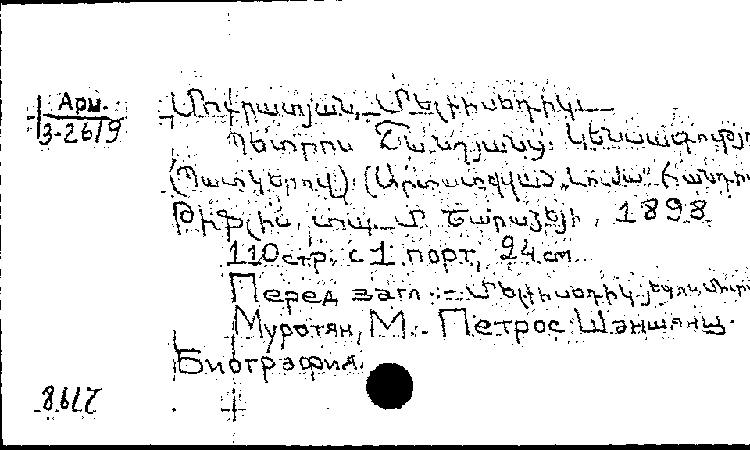 Арм.
3-2619
Մուրատյան, Մելքիսեդեկ.
Պետրոս Շանշյանց. Կենսագրությո
(Պատկերով). (Արտատպված „Լումա"
Թիֆլիս, տպ. Մ. Շարաձեի, 1898
110 стр. с 1 порт, 24 cm
Перед загл. –
Муротян, М. - Петрос Шаншянц.
Биография.